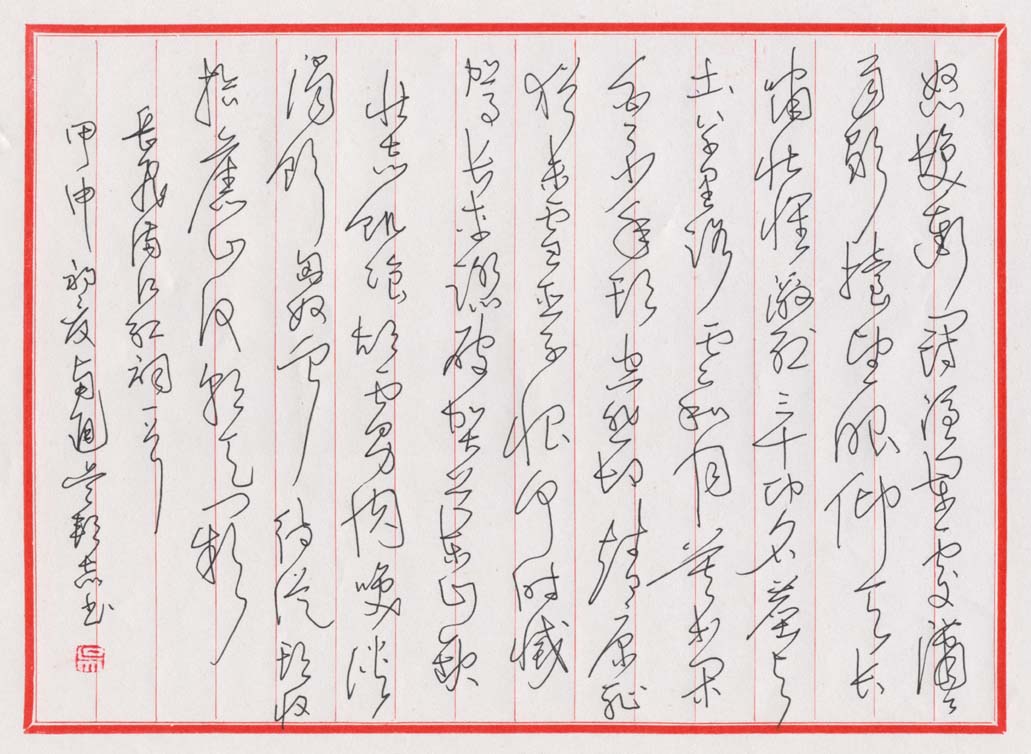 怒髮衝冠憑闌處瀟瀟
雨歇擡望眼仰天长
嘯壯懷激烈三十功名塵与
土八千里路雲和月莫等閑
白了少年頭空悲切靖康耻
猶未雪臣子恨何時滅
駕長車踏破賀蘭山缺
壯志飢餐胡虜肉笑談
渴飲匈奴血待從頭收
拾舊山河朝天闕
岳飛滿江紅詞一首
甲申初夏南通吴志书